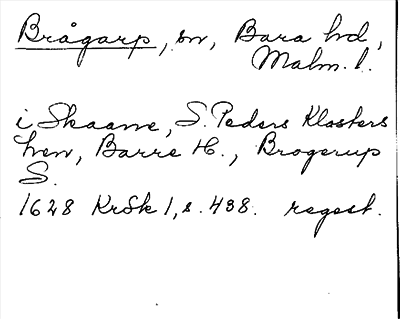 Brågarp, sn, Bara hd,
Malm. l.
i Skaane, S. Peders Klosters
len, Barre H., Brogerup
S.
1628 KrSk 1, s. 438. regest.